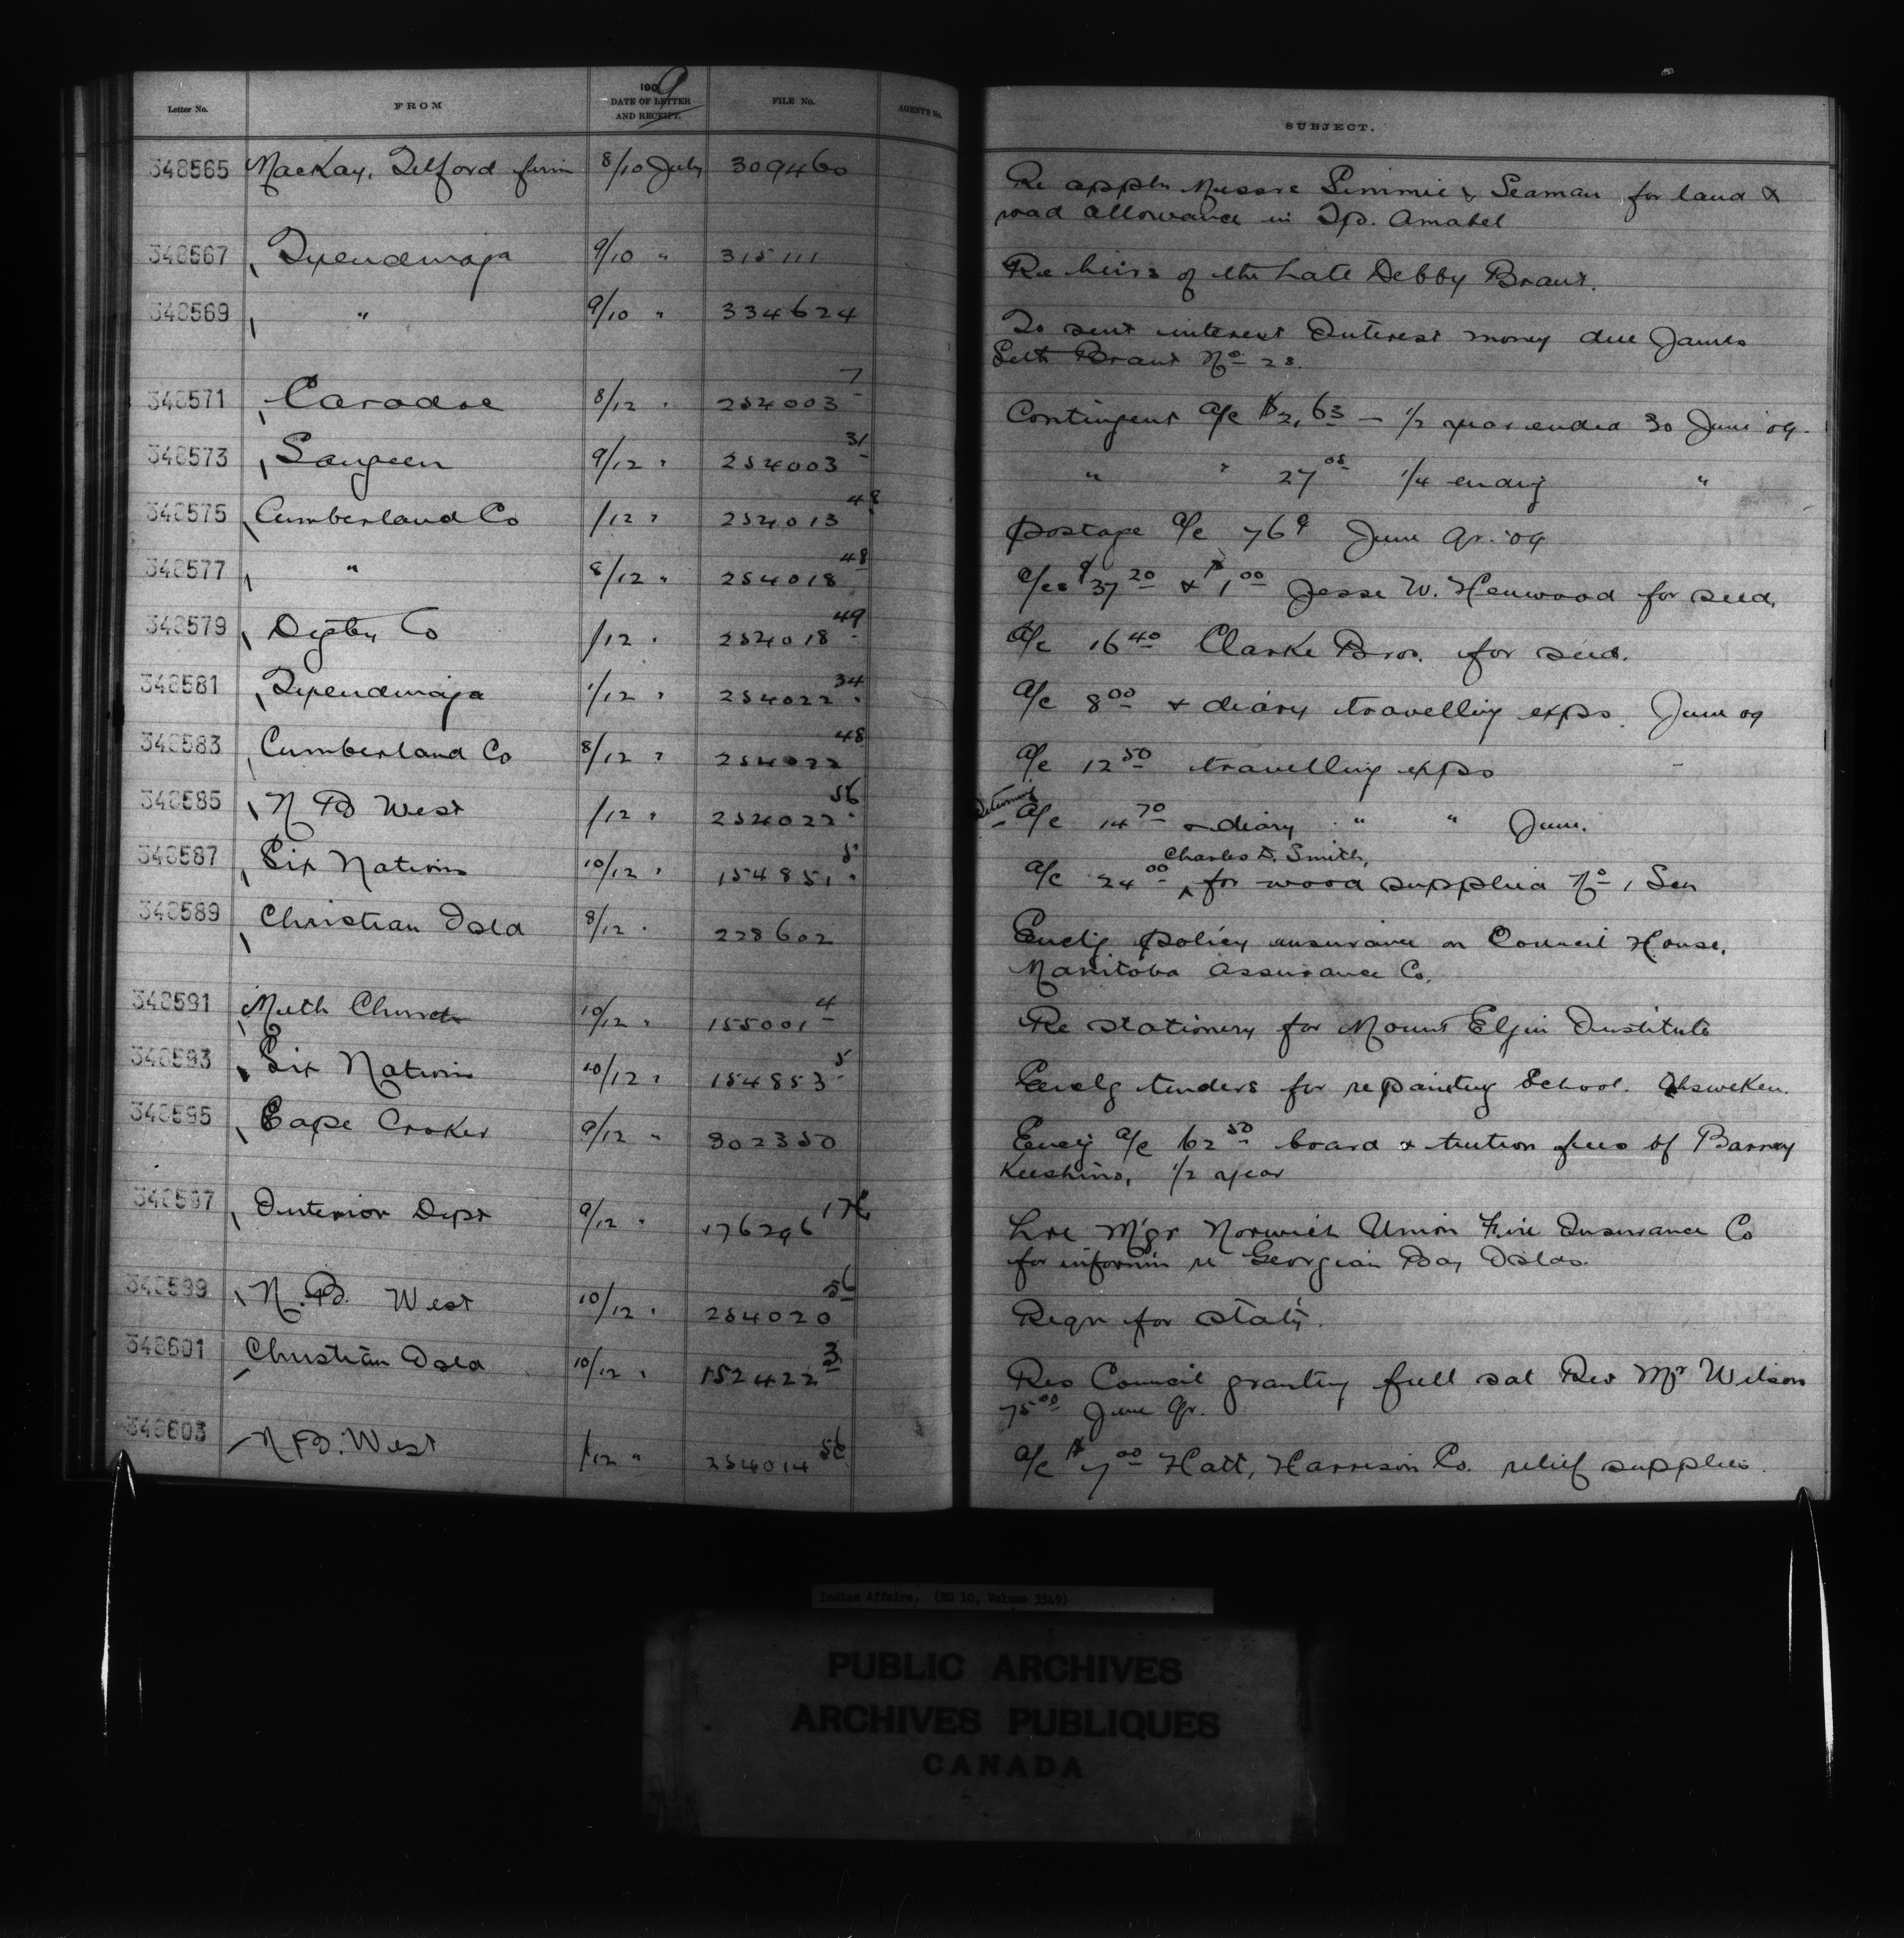 Letter No. FROM 1909 DATE OF LETTER AND RECEIPT. FILE No. AGENT'S No. SUBJECT.
348565 MacKay, Telford firm 8/10 July 309460 Re appln Messrs Simmie & Seaman for land &
road allowance in Tp. Amabel
348567 Tyendinaga 9/10 " 315111 Re heirs of the late Debby Brant.
348569 " 9/10 " 334624 To sent interest Interest money due James
Seth Brant No 28.
348571 Caradoc 8/12 " 254003 7 Contingent a/c $2,63 – 1/2 year ended 30 June 09.
348573 Saugeen 9/12 " 254003 31 " " 27 05 1/4 endig "
348575 Cumberland Co /12 " 254013 48 postage a/c 76¢ June qr. '09
348577 " 8/12 " 254018 48 a/cs $37 20 & $1 00 Jesse W. Henwood for seed.
348579 Digby Co /12 " 254018 49 a/c 16 40 Clarke Bros. for seed.
348581 Tyendinaga 1/12 " 254022 34 a/c 8 00 & diary travelling exps. June 09
348583 Cumberland Co 8/12 " 254022 48 a/c 12 50 travelling exps
348585 N B West /12 " 254022 56 Returning a/c 14 70 & diary " " June.
348587 Six Nations 10/12 " 154851 5 a/c 24 00 Charles D. Smith, for wood supplied No 1 Sch
348589 Christian Isld 8/12 " 228602 Enclg policy insurance on Council House.
Manitoba Assurance Co.
348591 Meth Church 10/12 " 155001 4 Re stationery for Mount Elgin Institute
348593 Six Nations 10/12 " 154853 5 Enclg tenders for repainting School. Ohsweken.
348595 Cape Croker 9/12 " 302350 Enclg a/c 62 50 board & tuition fees of Barney
Keeshino, 1/2 year
348597 Interior Dept 9/12 " 176296 176 Lre Mgr Norwich Union Fire Insurance Co
for informn re Georgian Bay Islds.
348599 N.B. West 10/12 " 254020 56 Reqn for staty.
348601 Christian Isld 10/12 " 152422 3 Res Council granting full sal Rev Mr Wilson
75 00 June qr.
348603 N.B. West /12 " 254014 56 a/c $7 00 Hatt, Harrison Co. relief supplies.
Indian Affairs. (RG 10, Volume 3349)
PUBLIC ARCHIVES
ARCHIVES PUBLIQUES
CANADA